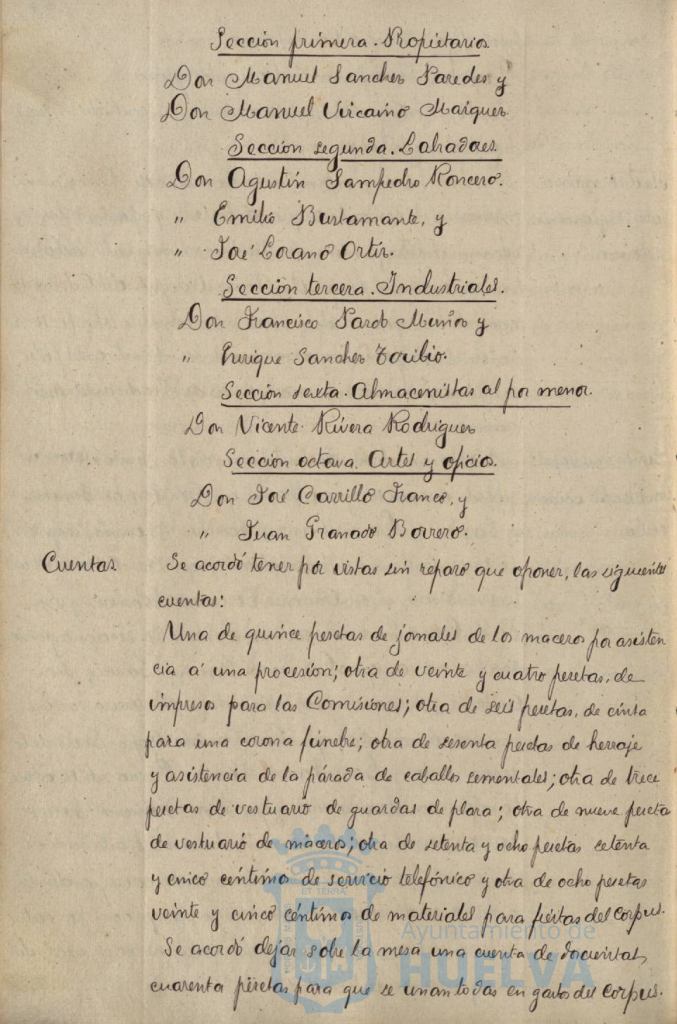 Sección primera. Propietarios
Don Manuel Sanchez Paredes y
Don Manuel Vizcaino Maiquez.
Sección segunda. Labradores.
Don Agustín Sampedro Roncero.
" Emilio Bustamante, y
" José Lozano Ortiz.
Sección tercera. Industriales.
Don Francisco Muñoz y
" Enrique Sanchez Toribio.
Sección sexta. Almacenistas al por menor.
Don Vicente Rivera Rodriguez
Sección octava. Artes y oficios.
Don José Carrillo Franco, y
" Juan Granado Borrero.
Cuentas Se acordó tener por vistas sin reparo que oponer, las siguientes
cuentas:
Una de quince pesetas de jornales de los maceros por asisten
cia á una procesion; otra de veinte y cuatro pesetas, de
impresos para las Comisiones; otra de seis pesetas, de cinta
para una corona fúnebre; otra de sesenta pesetas de herraje
y asistencia de la párada de caballos sementales; otra de trece
pesetas de vestuario de guardas de plaza; otra de nueve pesetas
de vestuario de maceros; otra de setenta y ocho pesetas setenta
y cinco céntimos de servicio telefónico y otra de ocho pesetas
veinte y cinco céntimos de materiales para fiestas del Corpus.
Se acordó dejar sobre la mesa una cuenta de doscientas
cuarenta pesetas para que se unan todas en gastos del Corpus.
Ayuntamiento de
HUELVA